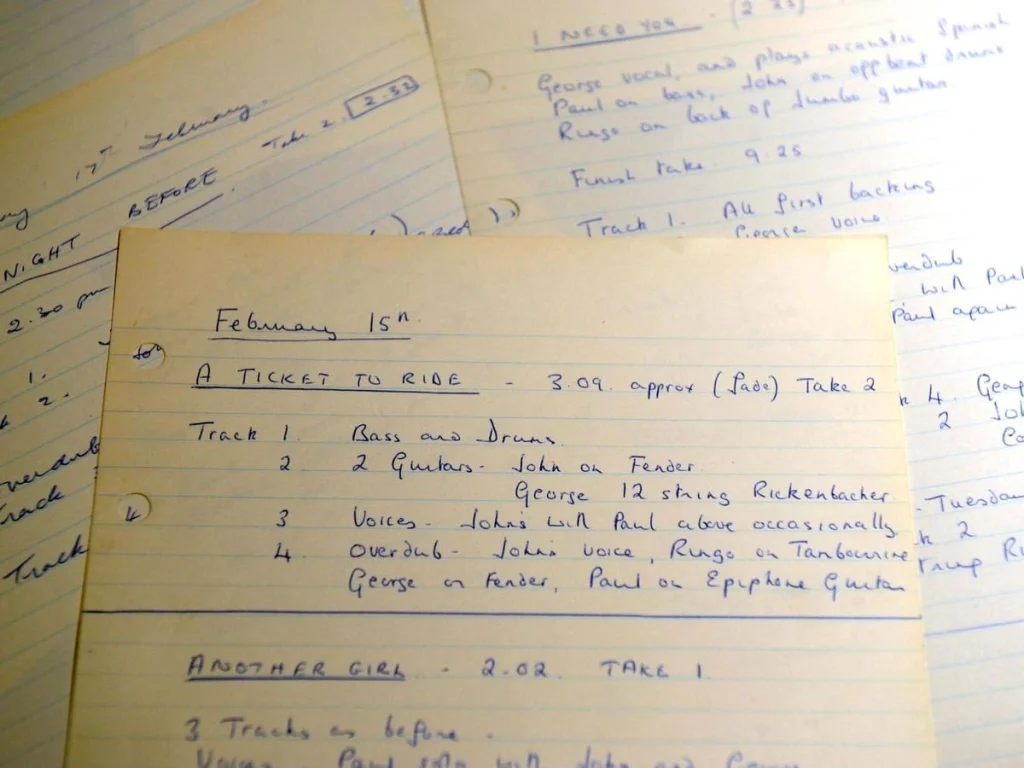 17th February.
NIGHT BEFORE Take 2. 2.32
2.30 pm
1.
2.
verdub
Track
Track
I NEED YOU - (2.25)
George vocal, and plays acoustic Spanish
Paul on bass, John on offbeat drums
Ringo on back of Jumbo guitar
Finish take 9.25
Track 1. All first backing
George voice
verdub
with Paul
Paul again
4. Geor
2 Joh
Co
- Tuesday
2
February 15th.
A TICKET TO RIDE - 3.09. approx (fade) Take 2
Track 1. Bass and Drums.
2 2 Guitars - John on Fender.
George 12 string Rickenbacher
3 Voices - John's with Paul above occasionally
4 Overdub - John's voice, Ringo on Tambourine
George on Fender, Paul on Epiphone Guitar
ANOTHER GIRL - 2.02. TAKE 1.
3 Tracks as before.
Voices Paul solo with John and George